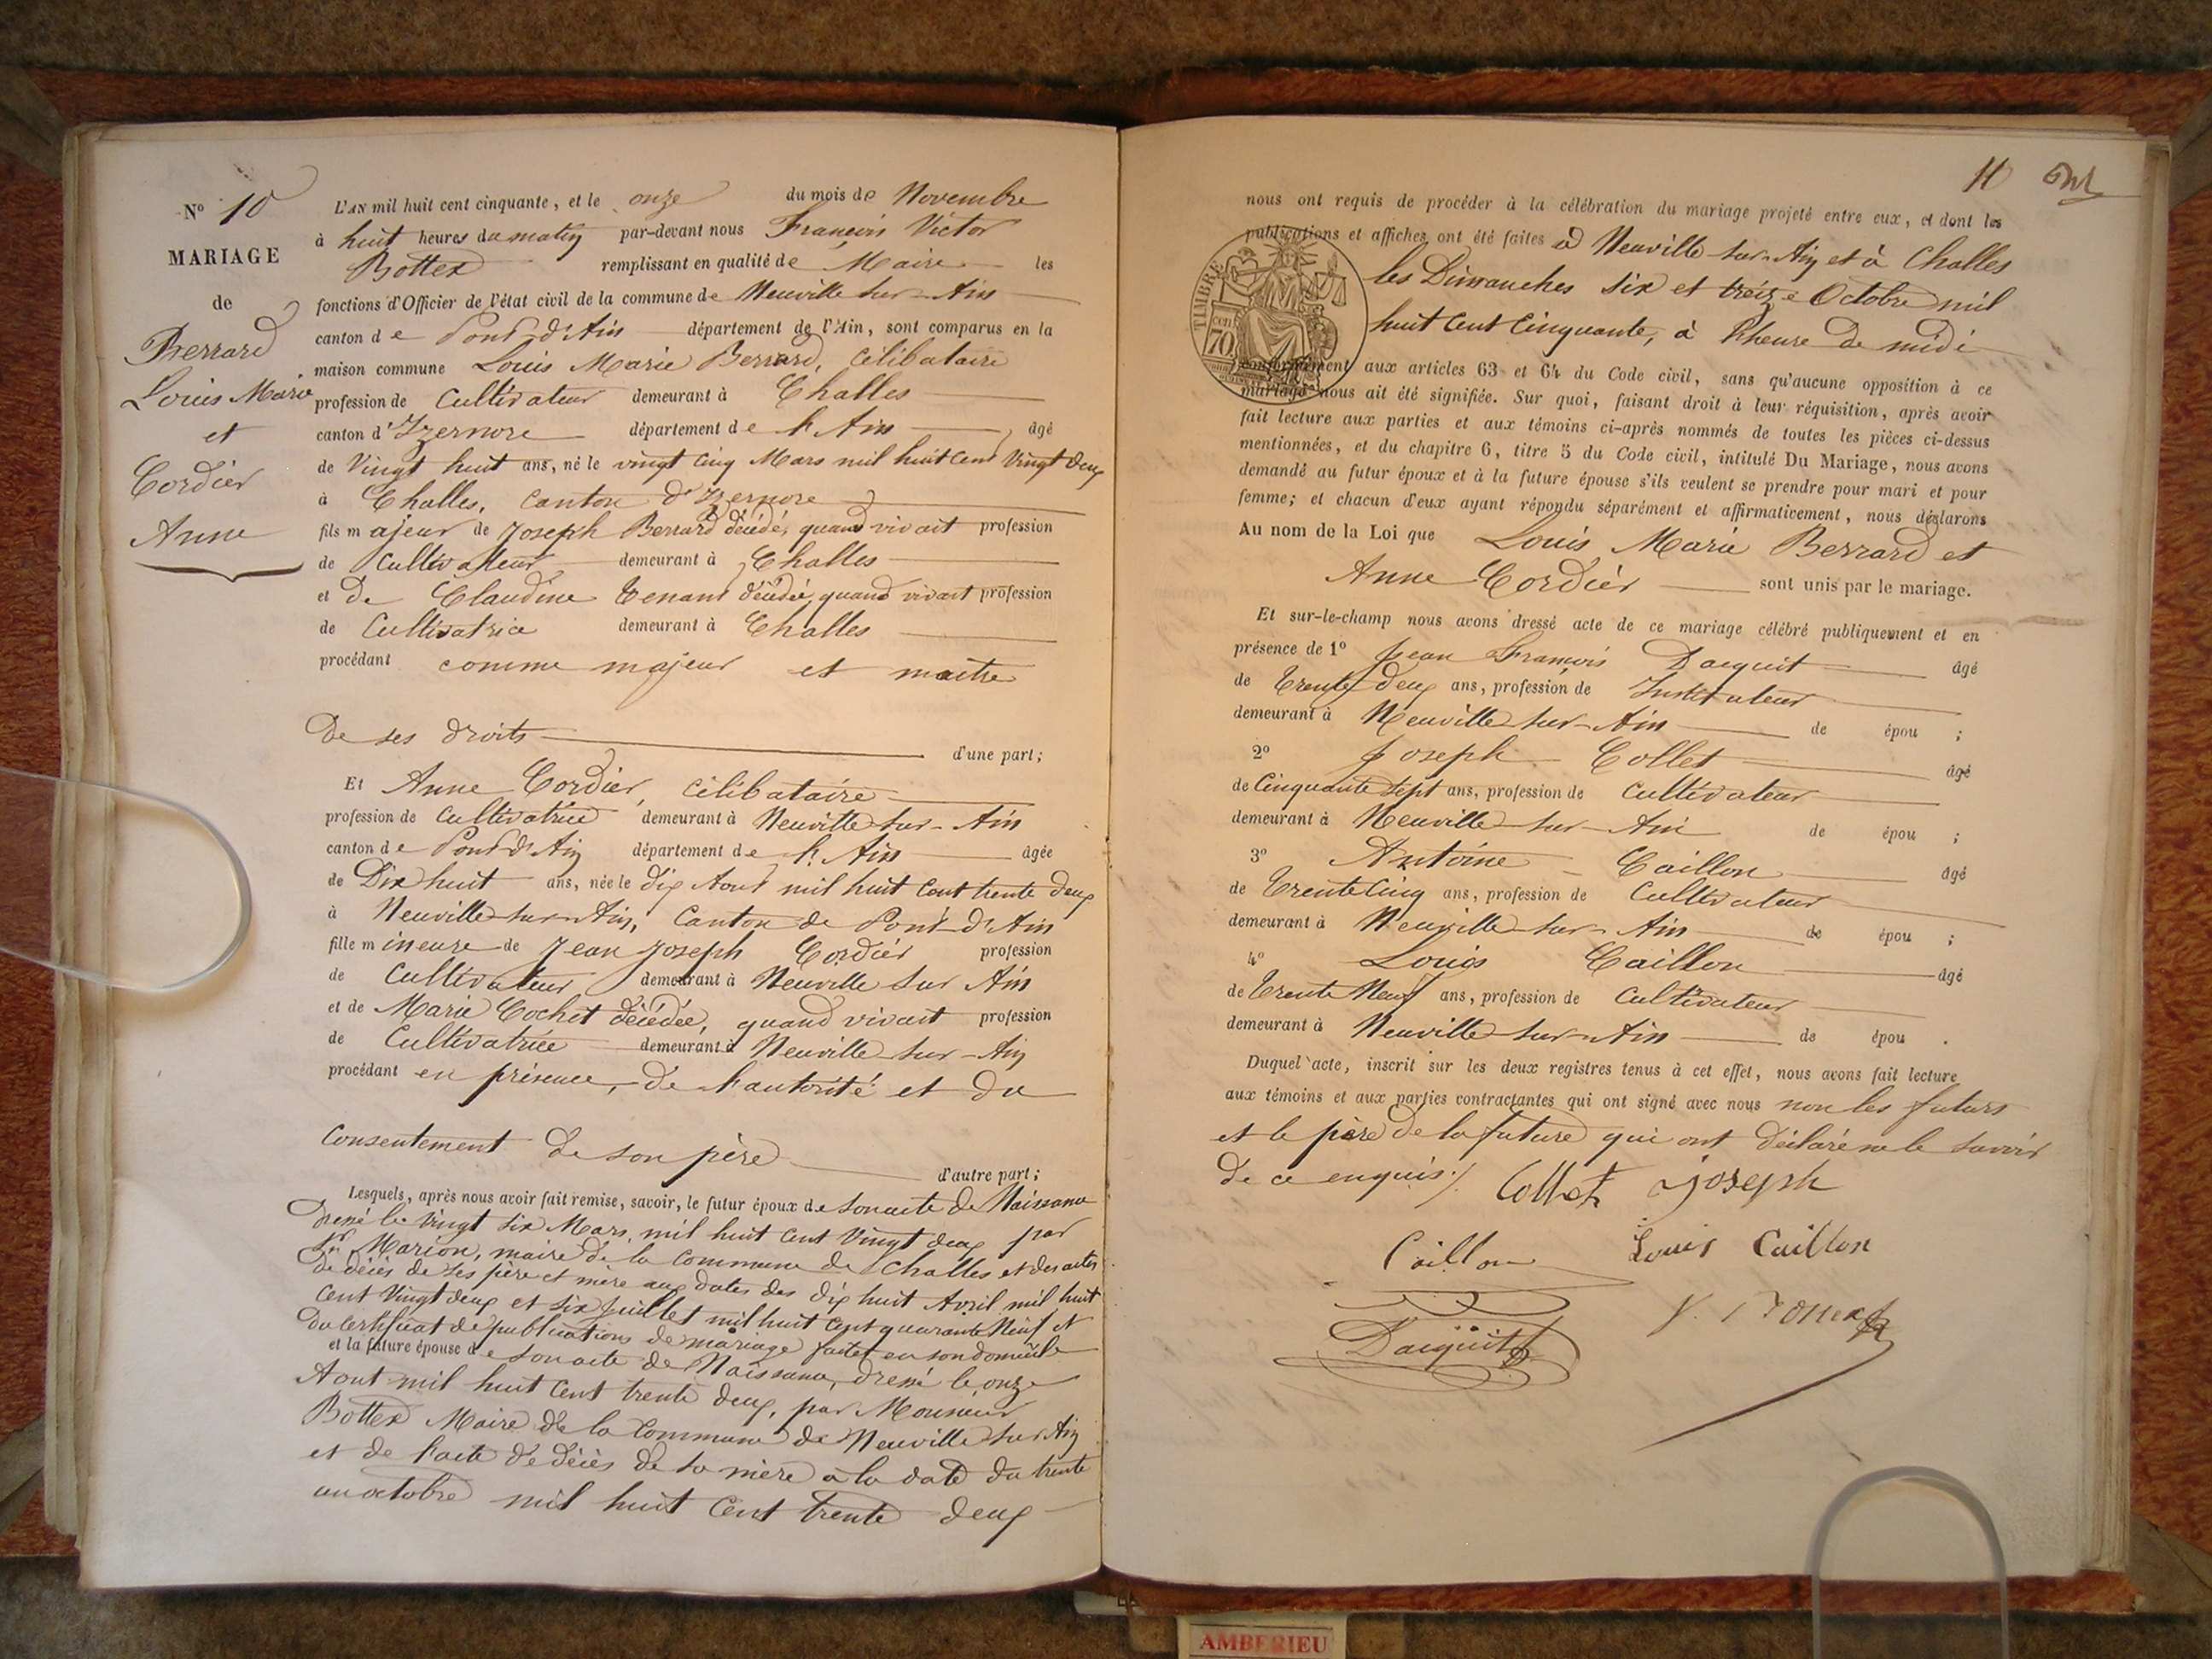 N° 10
MARIAGE
de
Berrard
Louis Marie
et
Cordier
Anne
L'AN mil huit cent cinquante, et le onze du mois de Novembre
à huit heures du matin par-devant nous François Victor
Bottex remplissant en qualité de Maire les
fonctions d'Officier de l'état civil de la commune de Neuville sur-Ain
canton de Pont-d'Ain département de l'Ain, sont comparus en la
maison commune Louis Marie Berrard, célibataire
profession de Cultivateur demeurant à Challes
canton d'Izernore département de l'Ain, âgé
de Vingt huit ans, né le vingt cinq Mars mil huit cent Vingt deux
à Challes, canton d'Izernore
fils majeur de Joseph Berrard décédé, quand vivait profession
de Cultivateur demeurant à Challes
et De Claudine Tenand décédée, quand vivait profession
de Cultivatrice demeurant à Challes
procédant comme majeur et maitre
De ses droits d'une part;
Et Anne Cordier, célibataire
profession de Cultivatrice demeurant à Neuville sur-Ain
canton de Pont d'Ain département de l'Ain âgée
de Dix huit ans, née le dix Aout mil huit cent trente deux
à Neuville sur-Ain, Canton de Pont-d'Ain
fille mineure de Jean Joseph Cordier profession
de Cultivateur demeurant à Neuville sur Ain
et de Marie Cochet décédée, quand vivait profession
de Cultivatrice demeurant à Neuville sur-Ain
procédant en présence, de l'autorité et du
Consentement de son père d'autre part;
Lesquels, après nous avoir fait remise, savoir, le futur époux de son acte de Naissance
Dressé le vingt six Mars, mil huit cent Vingt deux par
Mr Marion, maire de la commune de Challes et des actes
de décès de ses père et mère aux dates des dix huit Avril mil huit
cent Vingt deux et six Juillet mil huit cent quarante Neuf et
du certificat de publications de mariage faites en son domicile
et la future épouse de son acte de Naissance, dressé le onze
Aout mil huit cent trente deux, par Monsieur
Bottex Maire de la Commune de Neuville sur Ain
et de l'acte de décès de sa mère à la date du trente
un octobre mil huit cent trente deux
11 onz
nous ont requis de procéder à la célébration du mariage projeté entre eux, et dont les
publications et affiches ont été faites à Neuville sur-Ain et à Challes
les Dimanches six et treize Octobre mil
huit cent cinquante, à l'heure de midi
TIMBRE
70 cent
conformément aux articles 63 et 64 du Code civil, sans qu'aucune opposition à ce
mariage nous ait été signifiée. Sur quoi, faisant droit à leur réquisition, après avoir
fait lecture aux parties et aux témoins ci-après nommés de toutes les pièces ci-dessus
mentionnées, et du chapitre 6, titre 5 du Code civil, intitulé Du Mariage, nous avons
demandé au futur époux et à la future épouse s'ils veulent se prendre pour mari et pour
femme; et chacun d'eux ayant répondu séparément et affirmativement, nous déclarons
Au nom de la Loi que Louis Marie Berrard et
Anne Cordier sont unis par le mariage.
Et sur-le-champ nous avons dressé acte de ce mariage célébré publiquement et en
présence de 1° Jean François Dacquit âgé
de Trente deux ans, profession de Instituteur
demeurant à Neuville sur-Ain de épou ;
2° Joseph Collet âgé
de Cinquante Sept ans, profession de Cultivateur
demeurant à Neuville sur-Ain de épou ;
3° Antoine Caillon âgé
de Trente Cinq ans, profession de Cultivateur
demeurant à Neuville sur-Ain de épou ;
4° Louis Caillon âgé
de Trente Neuf ans, profession de Cultivateur
demeurant à Neuville sur-Ain de épou .
Duquel acte, inscrit sur les deux registres tenus à cet effet, nous avons fait lecture
aux témoins et aux parties contractantes qui ont signé avec nous non les futurs
et le père de la future qui ont déclaré ne le savoir
de ce enquis
Collet Joseph
Caillon
Louis Caillon
Dacquit
V. Bottex
AMBERIEU